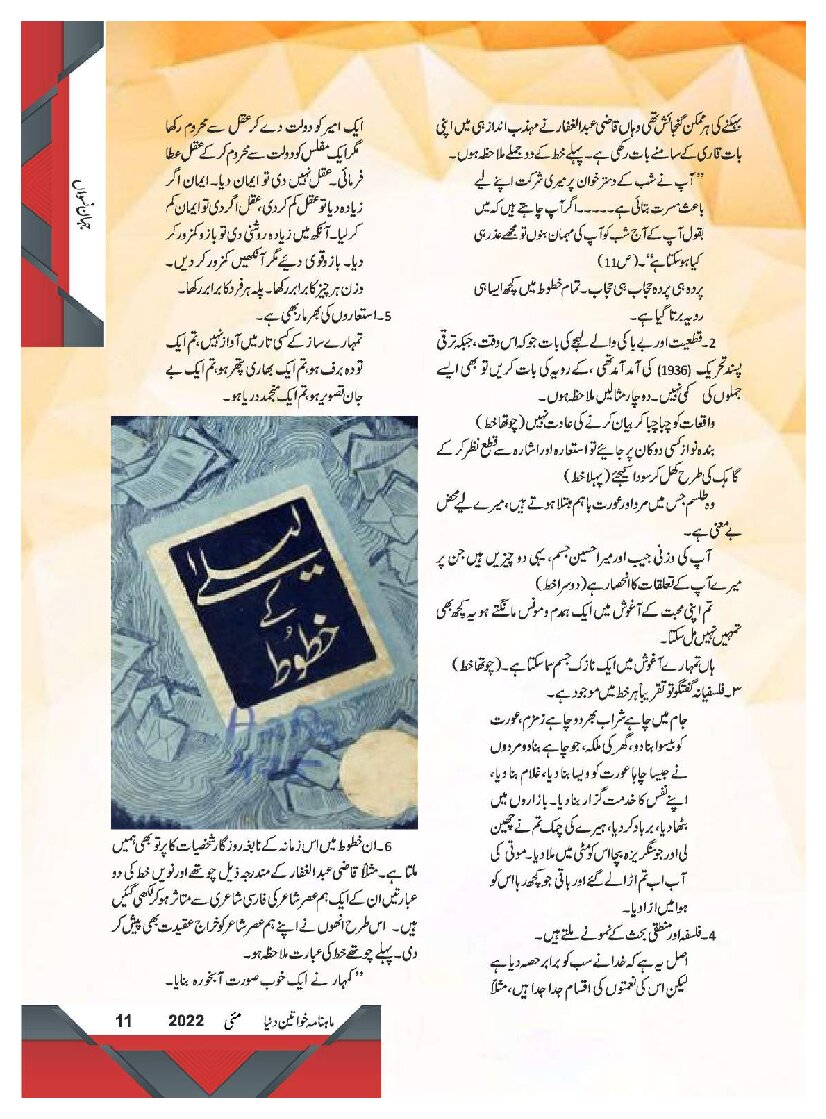 بہکنے کی ہر ممکن گنجائش تھی وہاں قاضی عبدالغفار نے مہذب انداز ہی میں اپنی
بات قاری کے سامنے بات رکھی ہے۔ پہلے خط کے دو جملے ملاحظہ ہوں۔
”آپ نے شب کے دسترخوان پر میری شرکت اپنے لیے
باعث مسرت بتائی ہے۔۔۔۔۔اگر آپ چاہتے ہیں کہ میں
بقول آپ کے آج شب کو آپ کی مہمان بنوں تو مجھے عذر ہی
کیا ہوسکتا ہے“۔ (ص11)
پردہ ہی پردہ حجاب ہی حجاب۔ تمام خطوط میں کچھ ایسا ہی
رویہ برتا گیا ہے۔
2۔ قطعیت اور بے باکی والے لہجے کی بات جو کہ اس وقت، جبکہ ترقی
پسند تحریک (1936) کی آمد آمد تھی، کے رویہ کی بات کریں تو بھی ایسے
جملوں کی کمی نہیں۔ دوچار مثالیں ملاحظہ ہوں۔
واقعات کو چبا چبا کر بیان کرنے کی عادت نہیں (چوتھا خط)
بندہ نواز کسی دوکان پر جایئے تو استعارہ اور اشارہ سے قطع نظر کر کے
گاہک کی طرح کھل کر سودا کیجئے (پہلا خط)
وہ طلسم جس میں مرد اور عورت باہم مبتلا ہوتے ہیں، میرے لیے محض
بے معنی ہے۔
آپ کی وزنی جیب اور میرا حسین جسم، یہی دو چیزیں ہیں جن پر
میرے آپ کے تعلقات کا انحصار ہے (دوسرا خط)
تم اپنی محبت کے آغوش میں ایک ہمدم و مونس مانگتے ہو یہ کچھ بھی
تمہیں نہیں مل سکتا۔
ہاں تمہارے آغوش میں ایک نازک جسم سما سکتا ہے۔ (چوتھا خط)
۳۔ فلسفیانہ گفتگو تو تقریباً ہر خط میں موجود ہے۔
جام میں چاہے شراب بھر دو چاہے زمزم، عورت
کو بیسوا بنا دو، گھر کی ملکہ، جو چاہے بنا دو مردوں
نے جیسا چاہا عورت کو ویسا بنا دیا، غلام بنا دیا،
اپنے نفس کا خدمت گزار بنا دیا۔ بازاروں میں
بٹھا دیا، برباد کر دیا، ہیرے کی چمک تم نے چھین
لی اور جو سنگریزہ بچا اس کو مٹی میں ملا دیا۔ موتی کی
آب اب تم اڑا لے گئے اور باقی جو کچھ رہا اس کو
ہوا میں اڑا دیا۔
4۔ فلسفہ اور منطقی بحث کے نمونے ملتے ہیں۔
اصل یہ ہے کہ خدا نے سب کو برابر حصہ دیا ہے
لیکن اس کی نعمتوں کی اقسام جدا جدا ہیں، مثلاً
ایک امیر کو دولت دے کر عقل سے محروم رکھا
مگر ایک مفلس کو دولت سے محروم کر کے عقل عطا
فرمائی۔ عقل نہیں دی تو ایمان دیا۔ ایمان اگر
زیادہ دیا تو عقل کم کر دی، عقل اگر دی تو ایمان کم
کر لیا۔ آنکھ میں زیادہ روشنی دی تو بازو کمزور کر
دیا۔ بازو قوی دیئے مگر آنکھیں کمزور کر دیں۔
وزن ہر چیز کا برابر رکھا۔ پلہ ہر فرد کا برابر رکھا۔
5۔ استعاروں کی بھرمار بھی ہے۔
تمہارے ساز کے کسی تار میں آواز نہیں، تم ایک
تودہ برف ہو، تم ایک بھاری پتھر ہو، تم ایک بے
جان تصویر ہو، تم ایک منجمد دریا ہو۔
لیلیٰ
کے
خطوط
6۔ ان خطوط میں اس زمانہ کے نابغہ روزگار شخصیات کا پرتو بھی ہمیں
ملتا ہے۔ مثلاً قاضی عبدالغفار کے مندرجہ ذیل چوتھے اور نویں خط کی دو
عبارتیں ان کے ایک ہم عصر شاعر کی فارسی شاعری سے متاثر ہو کر لکھی گئیں
ہیں۔ اس طرح انھوں نے اپنے ہم عصر شاعر کو خراج عقیدت بھی پیش کر
دی۔ پہلے چوتھے خط کی عبارت ملاحظہ ہو۔
”کمہار نے ایک خوب صورت آبخورہ بنایا۔
جہان نسواں
ماہنامہ خواتین دنیا مئی 2022 11